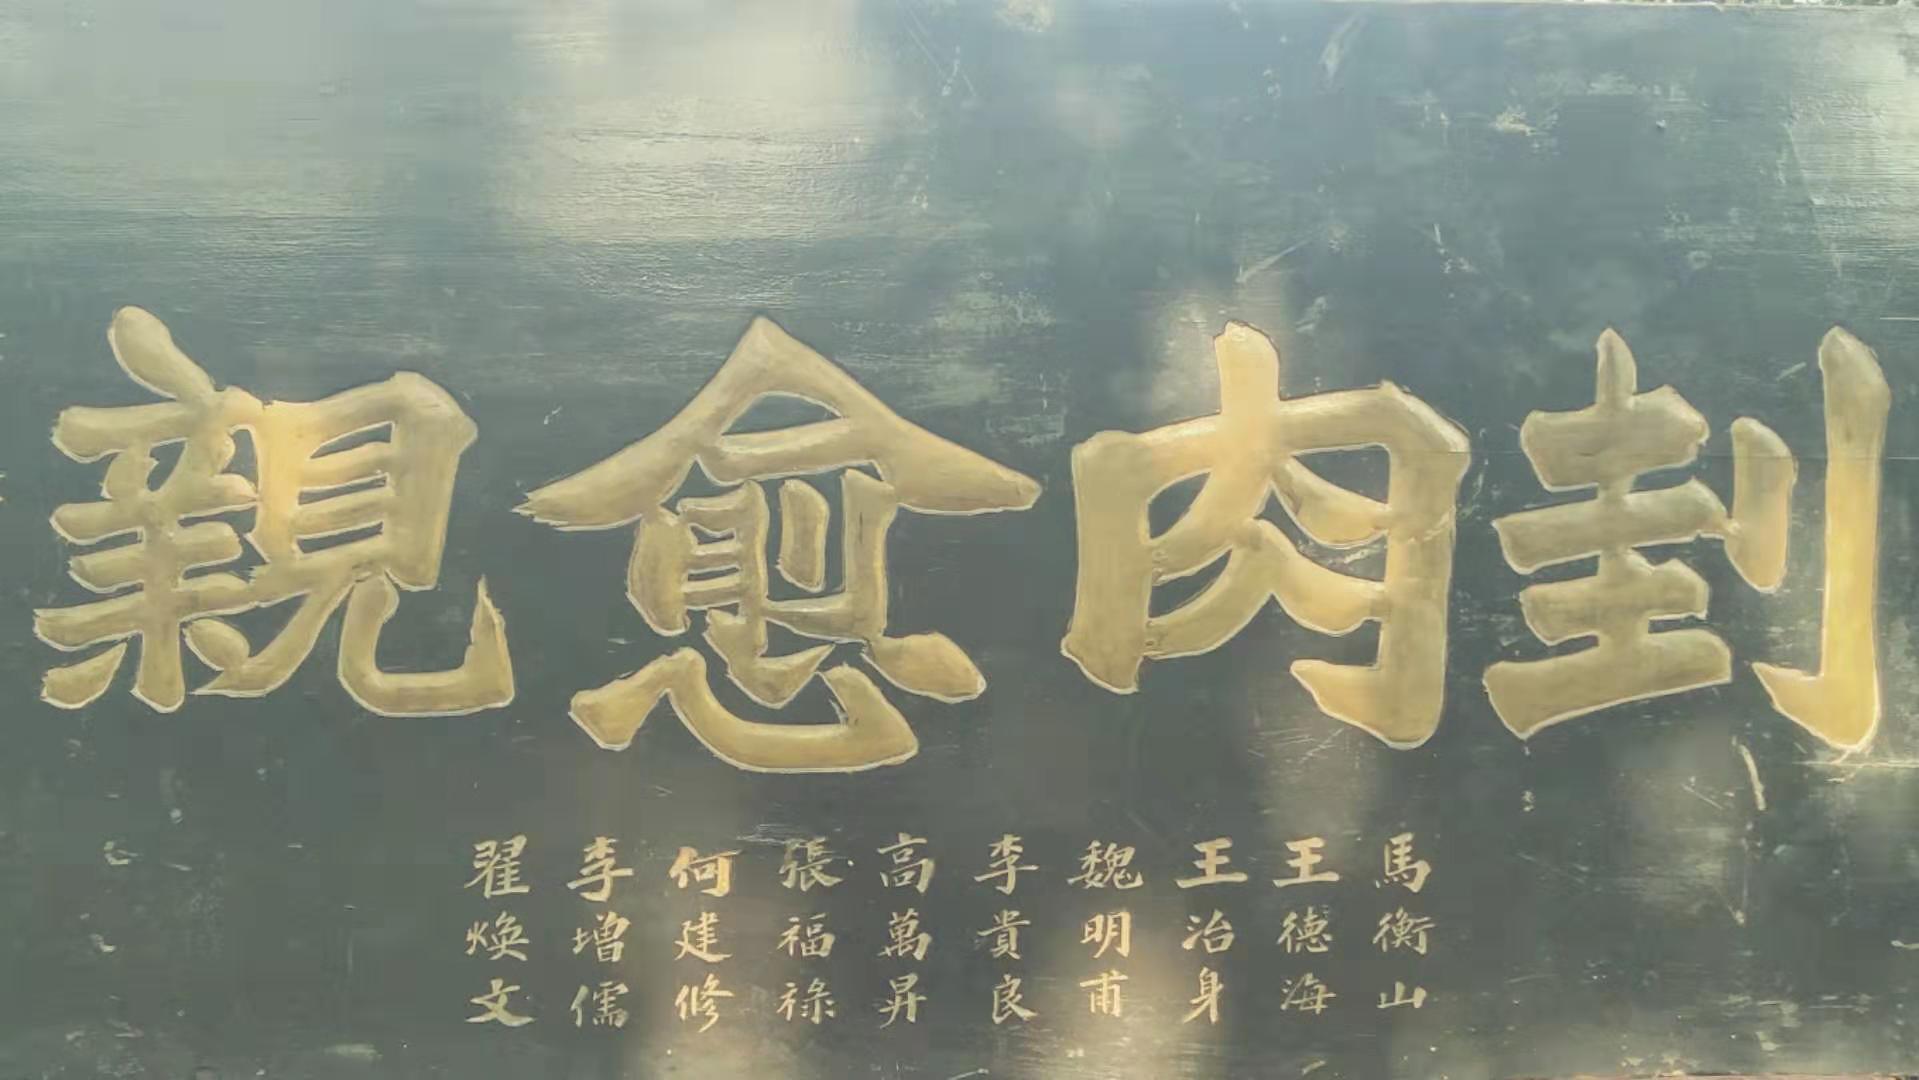 刲肉愈親
馬衡山
王德海
王治身
魏明甫
李貴良
高萬昇
張福祿
何建修
李增儒
翟煥文